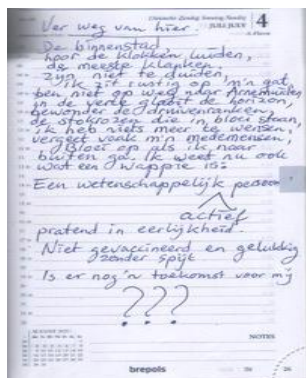 Ver weg van hier.
4
JULI JULY
De binnenstad
hoor de klokken luiden,
de meeste klanken
zijn niet te duiden.
ik zit rustig op m'n gat,
ben niet op weg naar Arnemuiden
in de verte gloeit de horizon,
bewonder de druivenranken,
de stokrozen die in bloei staan,
ik heb niets meer te wensen,
vergeet vaak m'n medemensen,
Bloei op als ik naar
buiten ga. Ik weet nu ook
wat een wappie is:
Een wetenschappelijk persoon
actief
pratend in eerlijkheid.
Niet gevaccineerd en gelukkig
zonder spijt
Is er nog 'n toekomst voor mij
???
NOTES
brepols
26